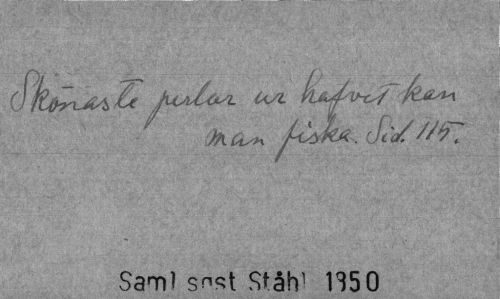 Skönaste perlor ur hafvet kan
man fiska. Sid. 115.
Saml sgst Ståhl 1350